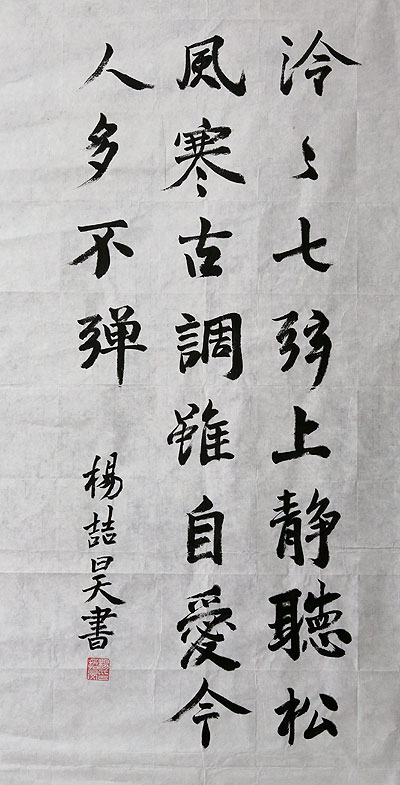 泠〻七弦上静聽松
風寒古調雖自愛今
人多不弹
楊喆昊書